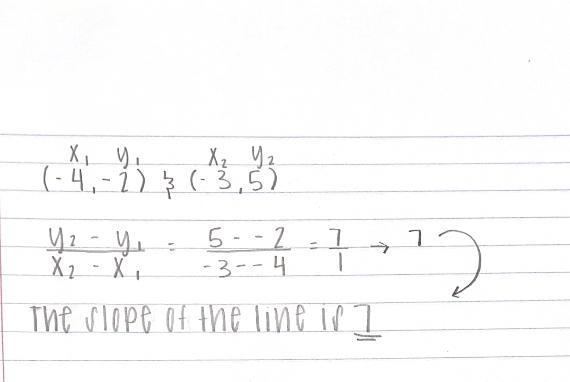 x₁ y₁ x₂ y₂
(-4,-2) & (-3,5)
y₂ - y₁ / x₂ - x₁ = 5 - -2 / -3 - -4 = 7/1 → 7
The slope of the line is 7